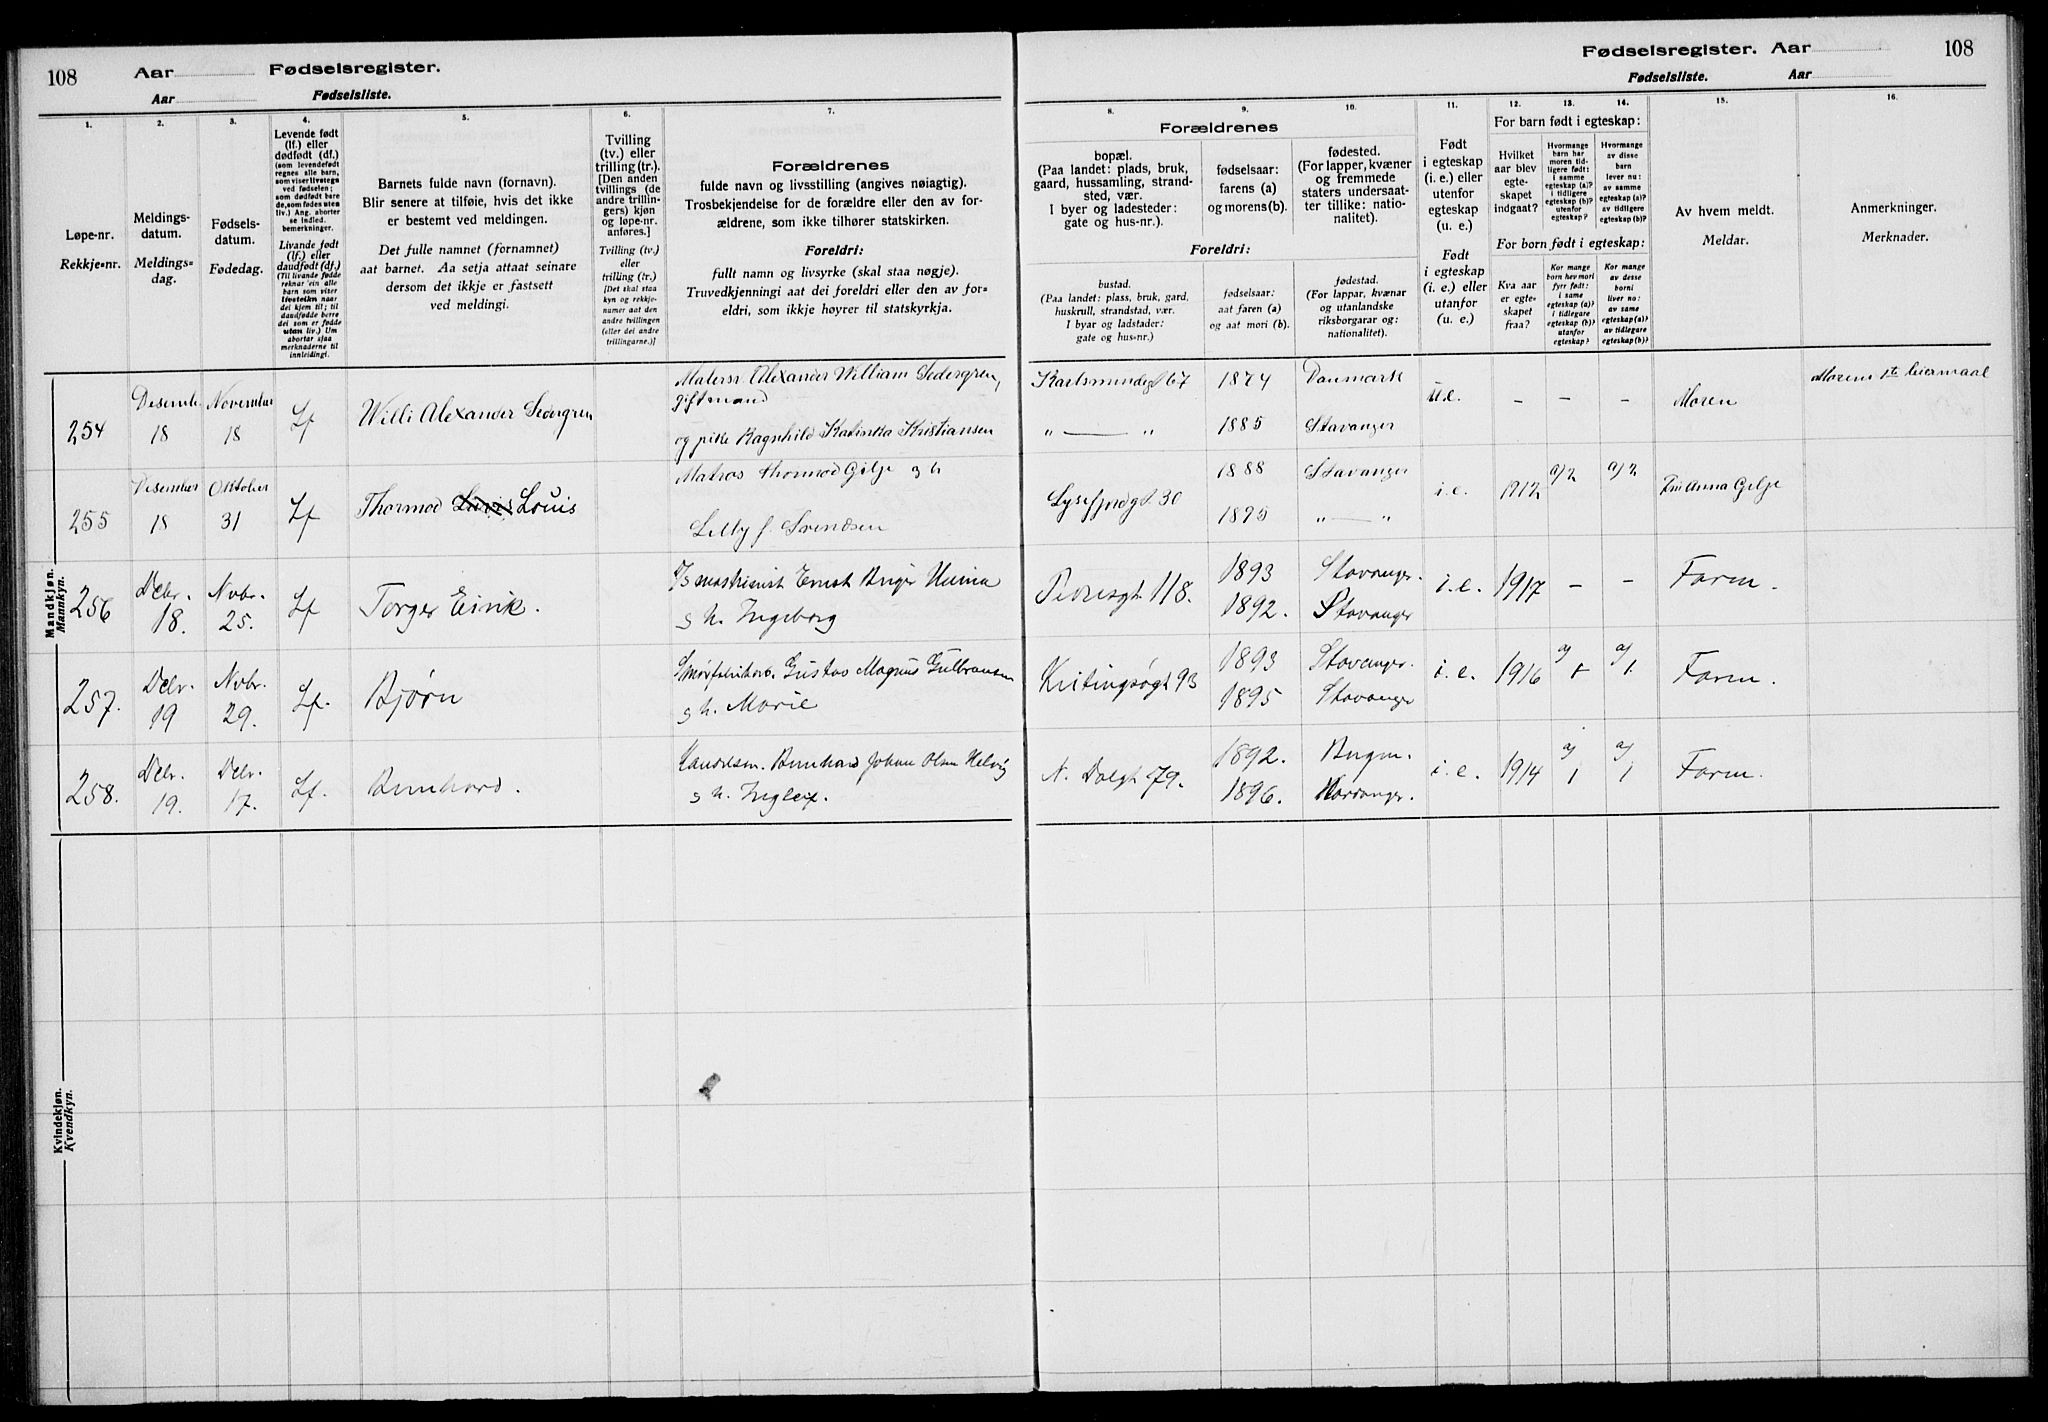 108
Aar
Fødselsregister.
Aar
Fødselsliste.
1.
Løpe-nr.
Rekkje-nr.
2.
Meldings-
datum.
Meldings-
dag.
3.
Fødsels-
datum.
Fødedag.
4.
Levende født
(lf.) eller
dødfødt (df.)
(som levendefødt
regnes alle barn,
som viser livstegn
ved fødselen;
som dødfødt bare
de, som fødes uten
liv.) Ang. aborter
se indled.
bemerkninger.
Livande født
(lf.) eller
daudfødt (df.)
(Til livande fødde
reknar ein alle
barn som viser
livsteikn naar
dei kjem til; til
daudfødde berre
dei som er fødde
utan liv.) Um
abortar sjaa
merknaderne til
innleidingi.
5.
Barnets fulde navn (fornavn).
Blir senere at tilføie, hvis det ikke
er bestemt ved meldingen.
Det fulle namnet (fornamnet)
aat barnet. Aa setja attaat seinare
dersom det ikkje er fastsett
ved meldingi.
6.
Tvilling
(tv.) eller
trilling (tr.).
[Den anden
tvillings (de
andre trillin-
gers) kjøn
og løpe-nr.
anføres.]
Tvilling (tv.)
eller
trilling (tr.)
[Det skal staa
kyn og rekkje-
numer aat den
andre tvillingen
(eller dei andre
trillingarne.)]
7.
Forældrenes
fulde navn og livsstilling (angives nøiagtig).
Trosbekjendelse for de forældre eller den av for-
ældrene, som ikke tilhører statskirken.
Foreldri:
fullt namn og livsyrke (skal staa nøgje).
Truvedkjenningi aat dei foreldri eller den av for-
eldri, som ikkje høyrer til statskyrkja.
Fødselsregister. Aar
108
Fødselsliste.
Aar
8.
9.
10.
Forældrenes
bopæl.
(Paa landet: plads, bruk,
gaard, hussamling, strand-
sted, vær.
I byer og ladesteder:
gate og hus-nr.).
fødselsaar:
farens (a)
og morens (b).
fødested.
(For lapper, kvæner
og fremmede
staters undersaat-
ter tillike: natio-
nalitet).
Foreldri:
bustad.
(Paa landet: plass, bruk, gard,
huskrull, strandstad, vær.
I byar og ladstader:
gate og hus-nr.)
fødselsaar:
aat faren (a)
og aat mori (b).
fødestad.
(For lappar, kvænar
og utanlandske
riksborgarar og:
nationalitet).
11.
Født
i egteskap
(i. e.) eller
utenfor
egteskap
(u. e.)
Født
i egteskap
(i. e.) eller
utanfor
(u. e.)
12.
13.
14.
For barn født i egteskap:
Hvilket
aar blev
egte-
skapet
indgaat?
Hvormange
barn har
moren tid-
ligere født:
i samme
egteskap (a)?
i tidligere
egteskap (b)?
utenfor
egteskap?
Hvormange
av disse
barn
lever nu:
av samme
egteskap (a)?
av tidligere
egteskap (b)?
For born født i egteskap:
Kva aar
er egte-
skapet
fraa?
Kor mange
born hev mori
fyrr født:
i same
egteskap (a)?
i tidlegare
egteskap (b)?
utanfor
egteskap?
Kor mange
av desse
borni
liver no:
av same
egteskap (a)?
av tidlegare
egteskap (b)?
15.
Av hvem meldt.
Meldar.
16.
Anmerkninger.
Merknader.
Mandkjøn.
Mannkyn.
254
18
November
18
Lf
Willi Alexander Sedergren
Malersv. Alexander William Sedergren,
giftmand
og pike Ragnhild Katinka Kristiansen
Karlsmindegt 67
" — "
1874
1885
Danmark
Stavanger
u.e.
- - -
Moren
Morens 1ste leiermaal
255
Desember
18
Oktober
31
Lf
Thormod Louis
Matros Thormod Gilje og h
Lilly J. Svendsen
Lysefjordgt. 30
1888
1895
Stavanger
" — "
i.e.
1912
a/2
a/2
Anna Gilje
256
Debr.
18.
Nvbr.
25.
Lf
Torger Eirik.
Ernst
g h. Ingeborg
Pedersgt 118.
1893
1892.
Stavanger.
Stavanger
i.e.
1917
-
-
Farm.
257.
Debr.
19
Nvbr.
29.
Lf.
Bjørn
Gustav Magnus Gulbransen
g h. Marie
93
1893
1895
Stavanger.
Stavanger
i.e.
1916
a/1
a/1.
Farm.
258.
Debr.
19.
Debr.
17.
Lf.
Bernhard.
Bernhard Johan Olsen Helvig
g h. Ingleif.
N. Dalgt 79.
1892.
1896.
Bergen.
Hardanger.
i.e.
1914
a/1
a/1
Farm.
Kvindekjøn.
Kvendkyn.